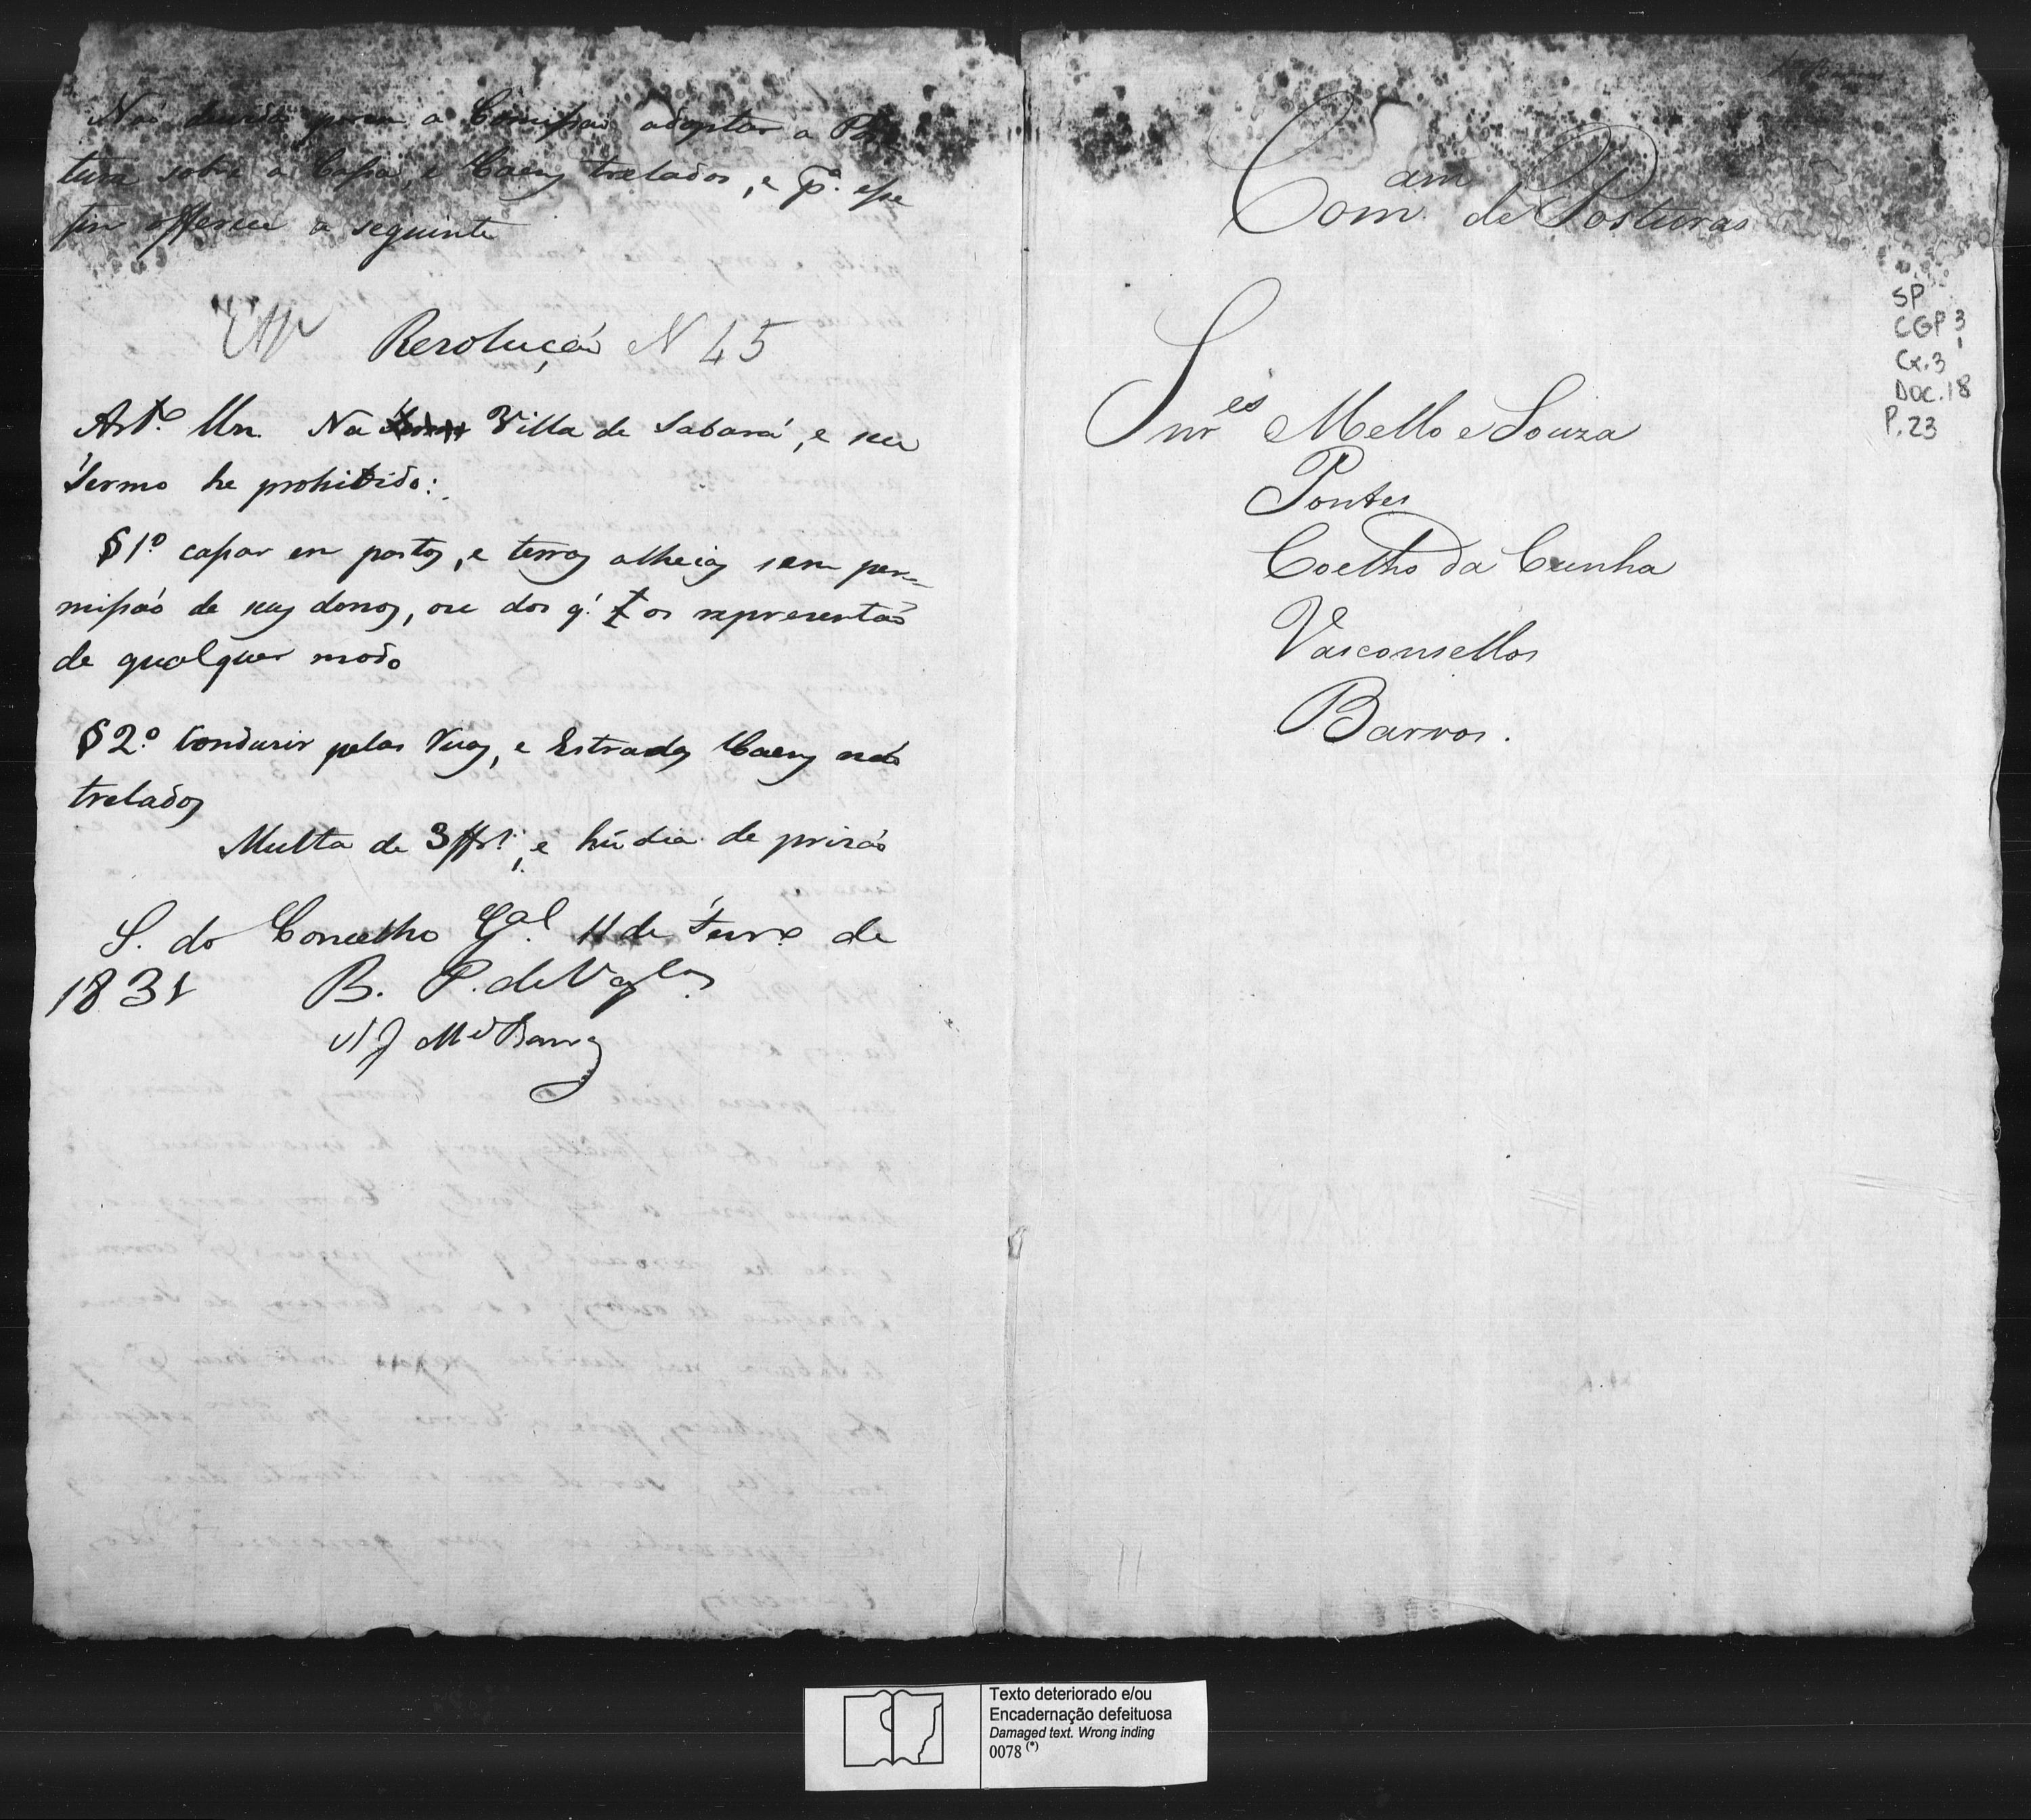 Não duvida porem a Comissão adoptar a Pos-
tura sobre a Cassa, e Caens trelados, e pª. esse
fim offerece a seguinte
Resolução N 45
Artº. Un. Na Villa de Sabará, e seu
Termo he prohibido:
§ 1º cassar em pastos, e terras alheias sem per-
missão de seus donos, ou dos q'. os representão
de qualquer modo
§ 2º Condusir pelas Ruas, e Estradas Caens não
trelados
Multa de 3$rs., e hũ dia de prisão
S. do Concelho Gal. 11 de Janrº de
1831 B. P. de Vasclos.
M J Md Barros
Comam. de Posturas
Snres Mello e Souza
Pontes
Coelho da Cunha
Vasconsellos
Barros.
SP
CGP 3
Cx.3
DOC.18
P.23
Texto deteriorado e/ou
Encadernação defeituosa
Damaged text. Wrong inding
0078 (*)